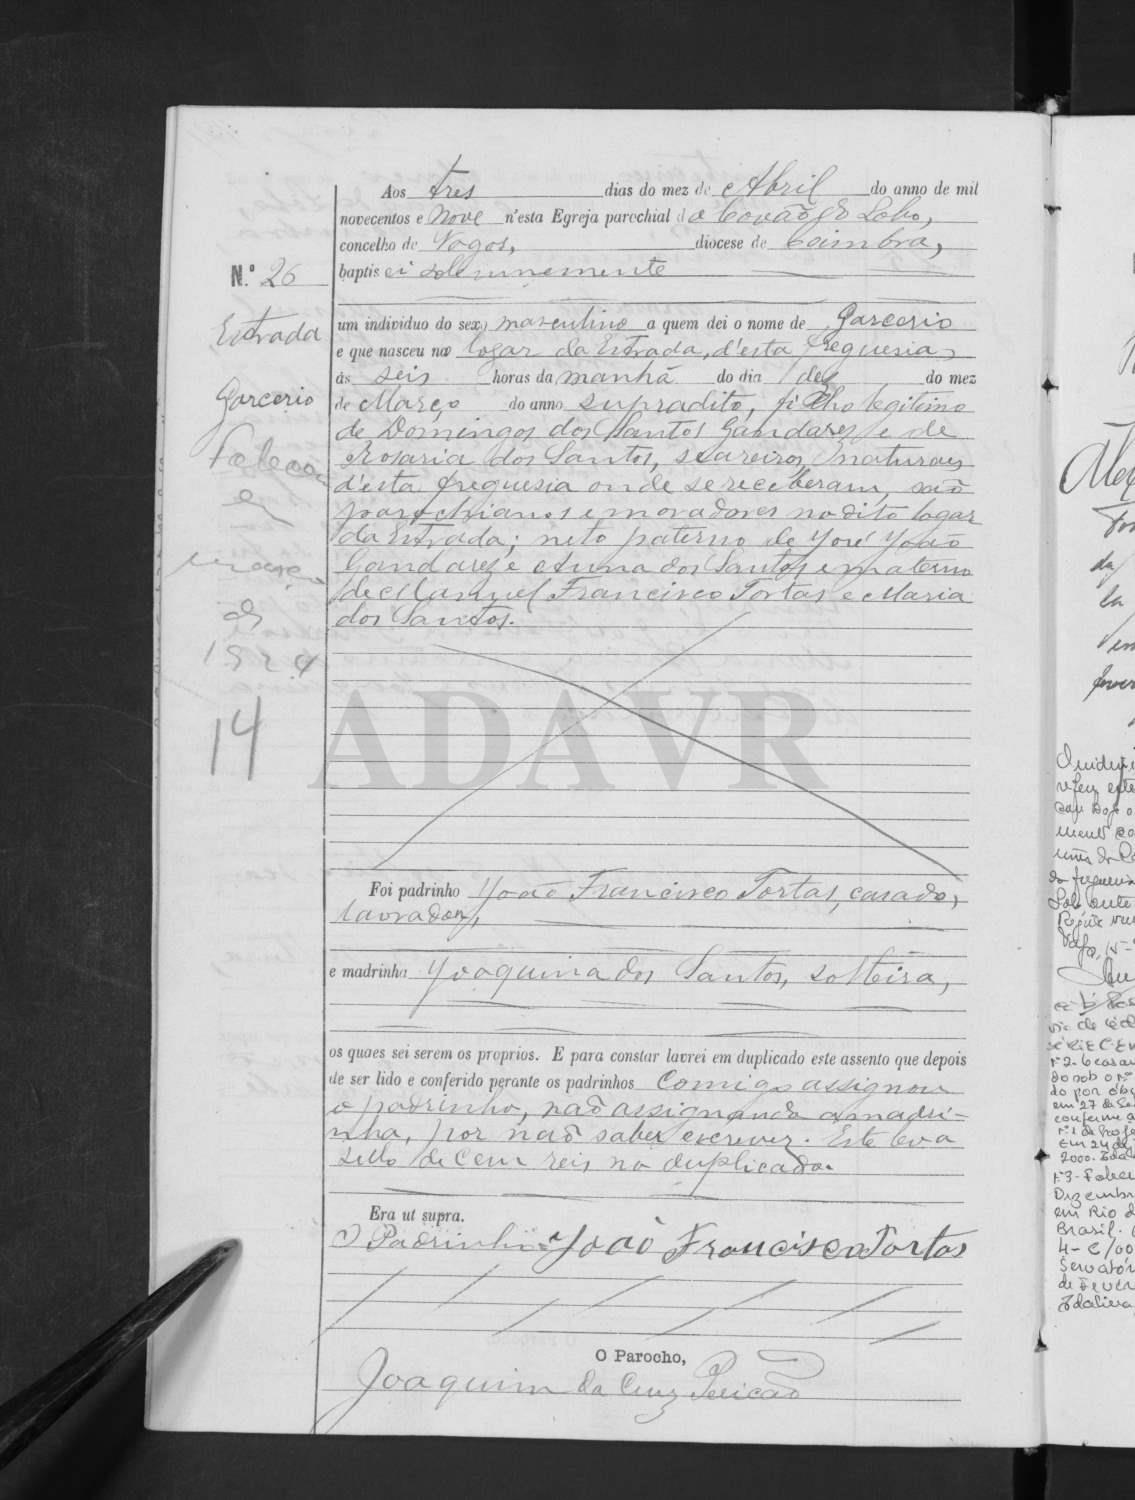 Aos tres dias do mez de Abril do anno de mil
novecentos e nove n'esta Egreja parochial de Covão do Lobo,
concelho de Vagos, diocese de Coimbra,
baptisei solemnemente
N.º 26
Estrada
Garcerio
Faleceu
em
março
de
1924
14
um individuo do sexo masculino a quem dei o nome de Garcerio
e que nasceu no logar da Estrada, d'esta freguesia
ás seis horas da manhã do dia dez do mez
de Março do anno supradito, filho legitimo
de Domingos dos Santos Gandarez e de
Rosaria dos Santos, seareiros, naturaes
d'esta freguesia onde se receberam, são
parochianos e moradores no dito logar
da Estrada; neto paterno de José João
Gandarez e Anna dos Santos e materno
de Manuel Francisco Tortas e Maria
dos Santos.
ADAVR
Foi padrinho João Francisco Tortas, casado,
lavrador,
e madrinha Joaquina dos Santos, solteira,
os quaes sei serem os proprios. E para constar lavrei em duplicado este assento que depois
de ser lido e conferido perante os padrinhos comigo assignou
o padrinho, não assignando a madri-
nha, por não saber escrever. Este leva
sello de cem reis no duplicado.
Era ut supra.
O Padrinho João Francisco Tortas
O Parocho,
Joaquim da Cruz Pericão